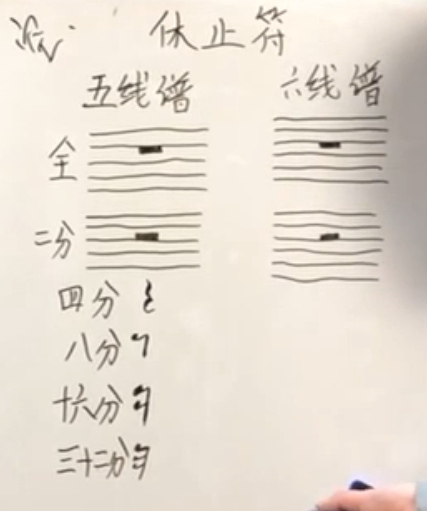 休止符
五线谱 六线谱
全
二分
四分
八分
十六分
三十二分